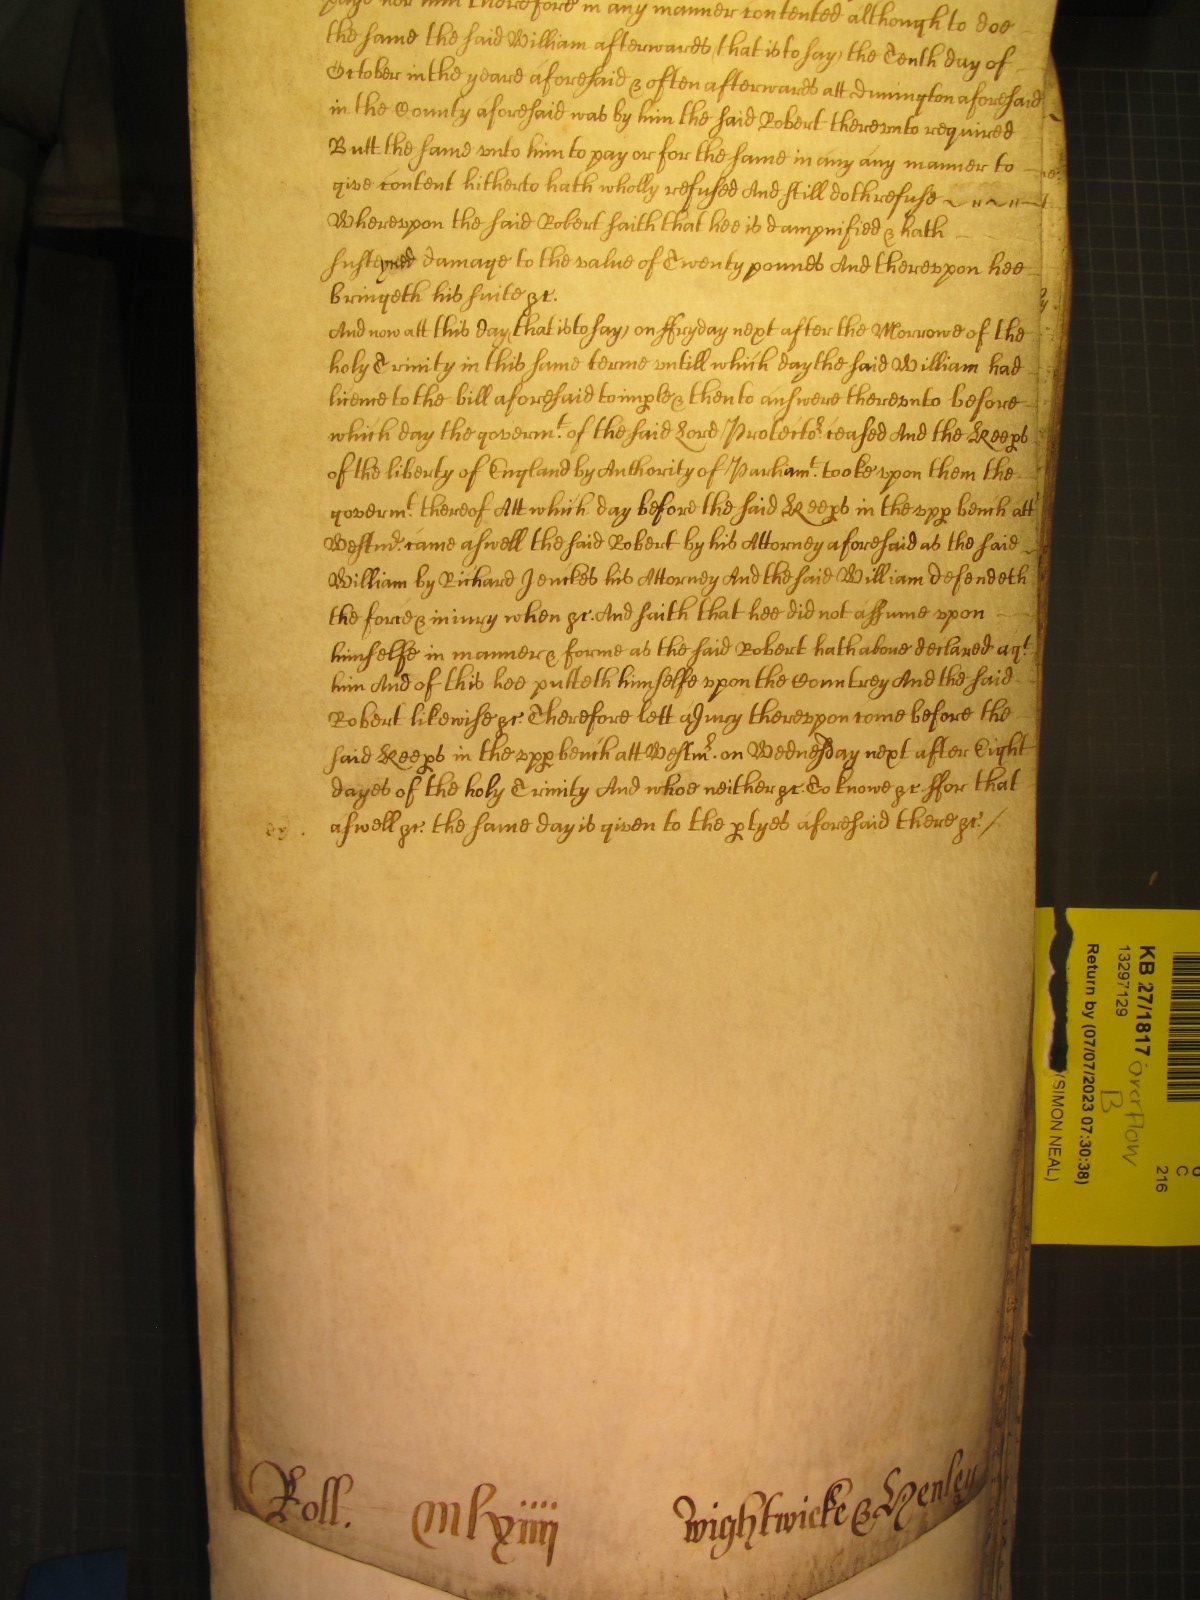 paye nor him therefore in any manner contented although to doe
the same the said William afterwards (that is to say) the Tenth day of
October in the yeare aforesaid & often afterwards att Dunington aforesaid
in the County aforesaid was by him the said Robert therevnto required
Butt the same vnto him to pay or for the same in any any manner to
give content hitherto hath wholly refused And still doth refuse
Wherevpon the said Robert saith that hee is dampnified & hath
susteyned damage to the value of Twenty pounds And therevpon hee
bringeth his suite &c.
And now att this day (that is to say) on ffryday next after the Morrowe of the
holy Trinity in this same terme vntill which day the said William had
licence to the bill aforesaid to imple & then to answere therevnto before
which day the governt. of the said Lord Protector. ceased And the Keeps
of the liberty of England by Authority of Parliamt. tooke vpon them the
govermt. thereof Att which day before the said Keeps in the vpp bench att
Westmr. came aswell the said Robert by his Attorney aforesaid as the said
William by Richard Jenckes his Attorney And the said William defendeth
the force & iniury when &c. And saith that hee did not assume vpon
himselfe in manner & forme as the said Robert hath above declared agt.
him And of this hee putteth himselfe vpon the Countrey And the said
Robert likewise &c. Therefore lett a Jury therevpon come before the
said Keeps in the vpp bench att Westmr. on Wednesday next after Eight
dayes of the holy Trinity And whoe neither &c. To knowe &c. ffor that
aswell &c. the same day is given to the ptyes aforesaid there &c. /
Roll. Mlxiiij Wightwicke & Henley
KB 27/1817 overflow B
13297129
Return by (07/07/2023 07:30:38)
(SIMON NEAL)
C
216